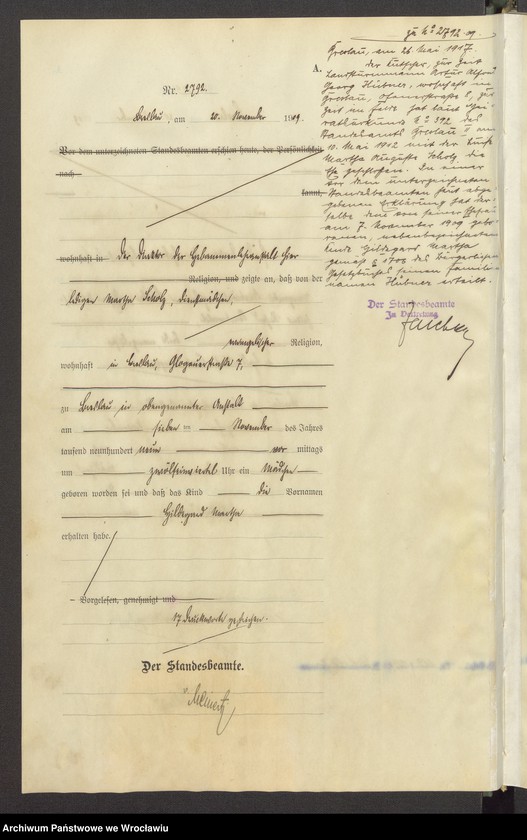 zu No 2792 09.
Breslau, am 26. Mai 1917.
Der Kutscher, zur Zeit
Landsturmmann Artur Alfred
Georg Hübner, wohnhaft in
Breslau, 8, zur
Zeit im Felde hat laut Hei-
ratsurkunde No 392 des
Standesamts Breslau II am
10. Mai 1912 mit der
Martha Auguste Scholz die
Ehe geschlossen. In einer
vor dem unterzeichneten
Standesbeamten heut abge-
gebenen Erklärung hat der-
selbe dem von seiner Ehefrau
am 7. November 1909 gebo-
renen, nebenbezeichneten
Kinde Hildegard Martha
gemäß § 1706 des Bürgerlichen
Gesetzbuches seinen Familien-
namen Hübner erteilt.
Der Standesbeamte
In Vertretung
A.
Nr. 2792.
Breslau, am 20. November 1909.
Vor dem unterzeichneten Standesbeamten erschien heute, der Persönlichkeit
nach
kannt,
wohnhaft in der Direktor der Hebammenlehranstalt hier
Religion, und zeigte an, daß von der
ledigen Martha Scholz, Dienstmädchen,
evangelischer Religion,
wohnhaft in Breslau, Glogauerstraße 7,
zu Breslau in obengenannter Anstalt
am sieben ten November des Jahres
tausend neunhundert neun vor mittags
um zwölfeinviertel Uhr ein Mädchen
geboren worden sei und daß das Kind die Vornamen
Hildegard Martha
erhalten habe.
Vorgelesen, genehmigt und
17 Druckworte gestrichen.
Der Standesbeamte.
Archiwum Państwowe we Wrocławiu